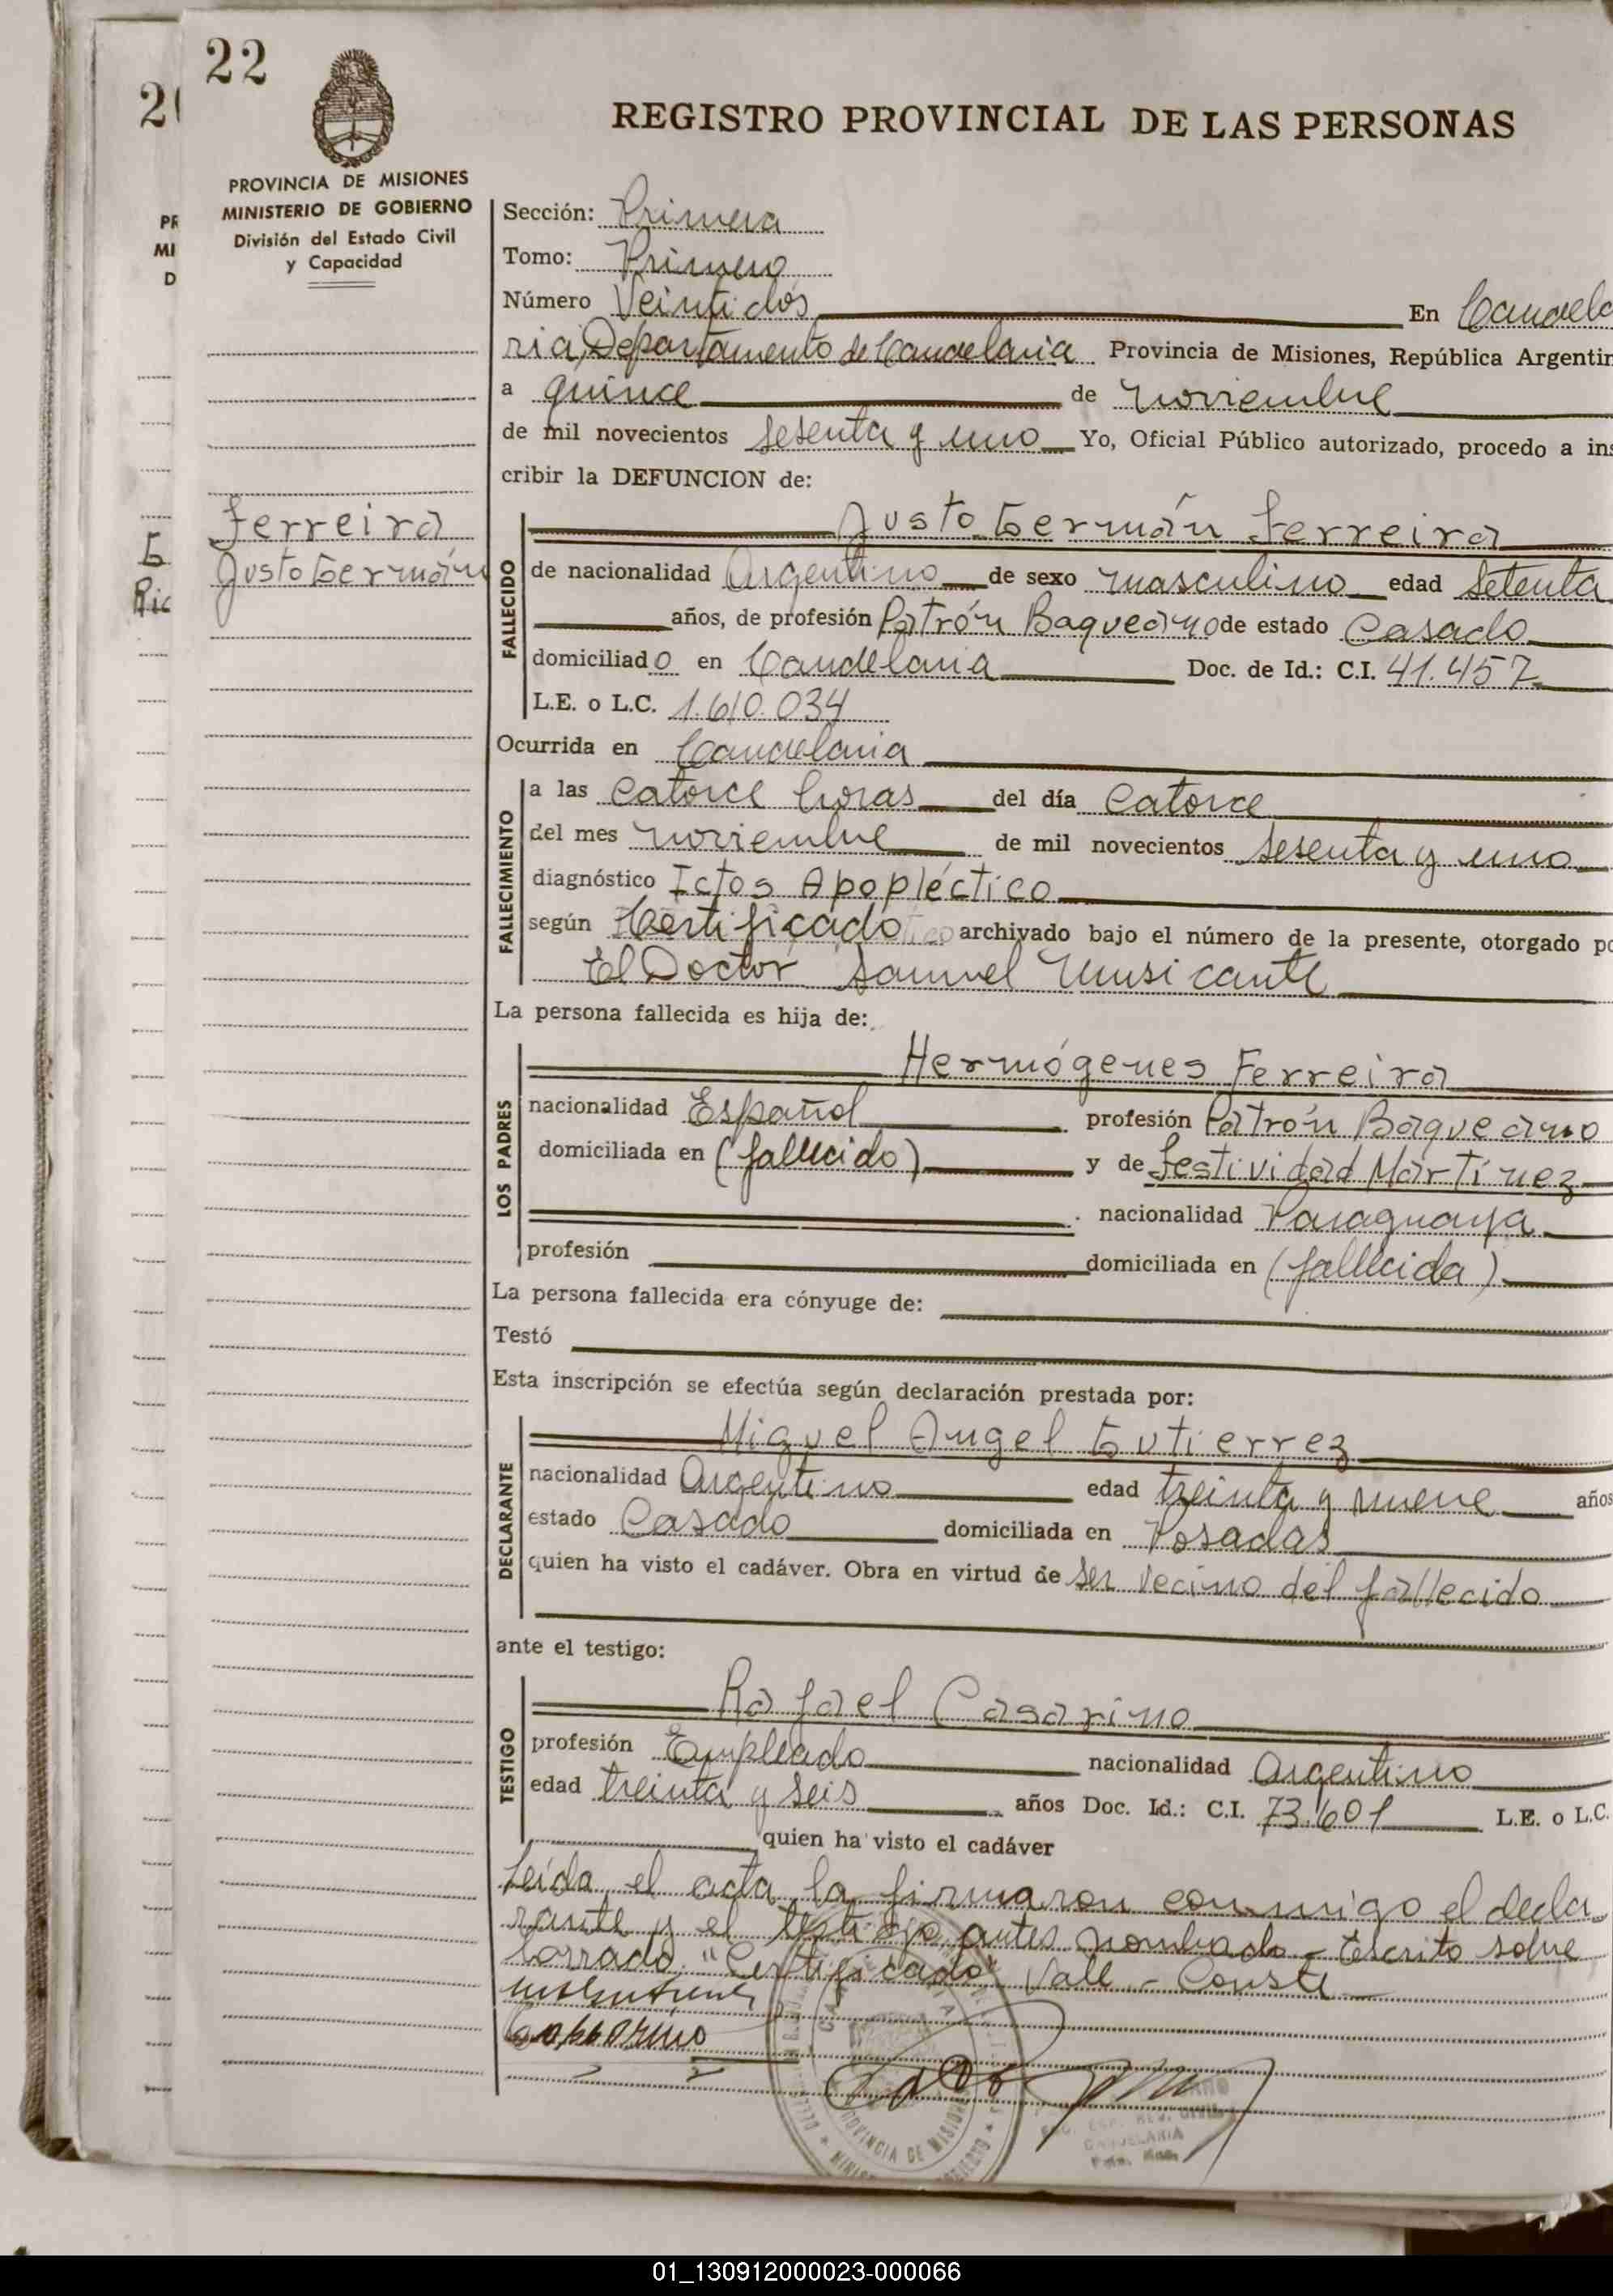 22
REGISTRO PROVINCIAL DE LAS PERSONAS
PROVINCIA DE MISIONES
MINISTERIO DE GOBIERNO
División del Estado Civil
y Capacidad
Sección: Primera
Tomo: Primero
Número Veintidós En Candela
ria, Departamento de Candelaria Provincia de Misiones, República Argentin
a quince de noviembre
de mil novecientos sesenta y uno Yo, Oficial Público autorizado, procedo a ins
cribir la DEFUNCION de:
Ferreira
Justo Germán
FALLECIDO
Justo Germán Ferreira
de nacionalidad Argentino de sexo masculino edad Setenta
años, de profesión Patrón Baqueano de estado Casado
domiciliado en Candelaria Doc. de Id.: C.I. 41.457
L.E. o L.C. 1.610.034
Ocurrida en Candelaria
FALLECIMIENTO
a las catorce horas del día catorce
del mes noviembre de mil novecientos sesenta y uno
diagnóstico Ictos Apopléctico
según Certificado archivado bajo el número de la presente, otorgado po
El Doctor Samuel Musicante
La persona fallecida es hija de:
LOS PADRES
Hermógenes Ferreira
nacionalidad Español profesión Patrón Baqueano
domiciliada en (fallecido) y de Festividad Martínez
nacionalidad Paraguaya
profesión domiciliada en (fallecida)
La persona fallecida era cónyuge de:
Testó
Esta inscripción se efectúa según declaración prestada por:
DECLARANTE
Miguel Angel Gutierrez
nacionalidad Argentino edad treinta y nueve años
estado Casado domiciliada en Posadas
quien ha visto el cadáver. Obra en virtud de ser vecino del fallecido
ante el testigo:
TESTIGO
Rafael Casarino
profesión Empleado nacionalidad Argentino
edad treinta y seis años Doc. Id.: C.I. 73.601 L.E. o L.C.
quien ha visto el cadáver
Leída el acta la firmaron conmigo el decla
rante y el testigo antes nombrado - Escrito sobre
borrado: "Certificado" Vale - Conste
PROVINCIA DE MISIONES
CANDELARIA
01_130912000023-000066